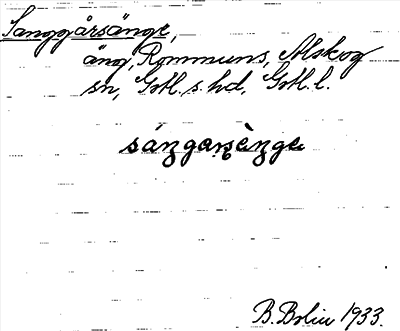 Sanggårsänge,
äng, Rommuns, Alskog
sn, Gotl. s. hd, Gotl. l.
sáŋgaʀsèŋgε
B. Bolin 1933.